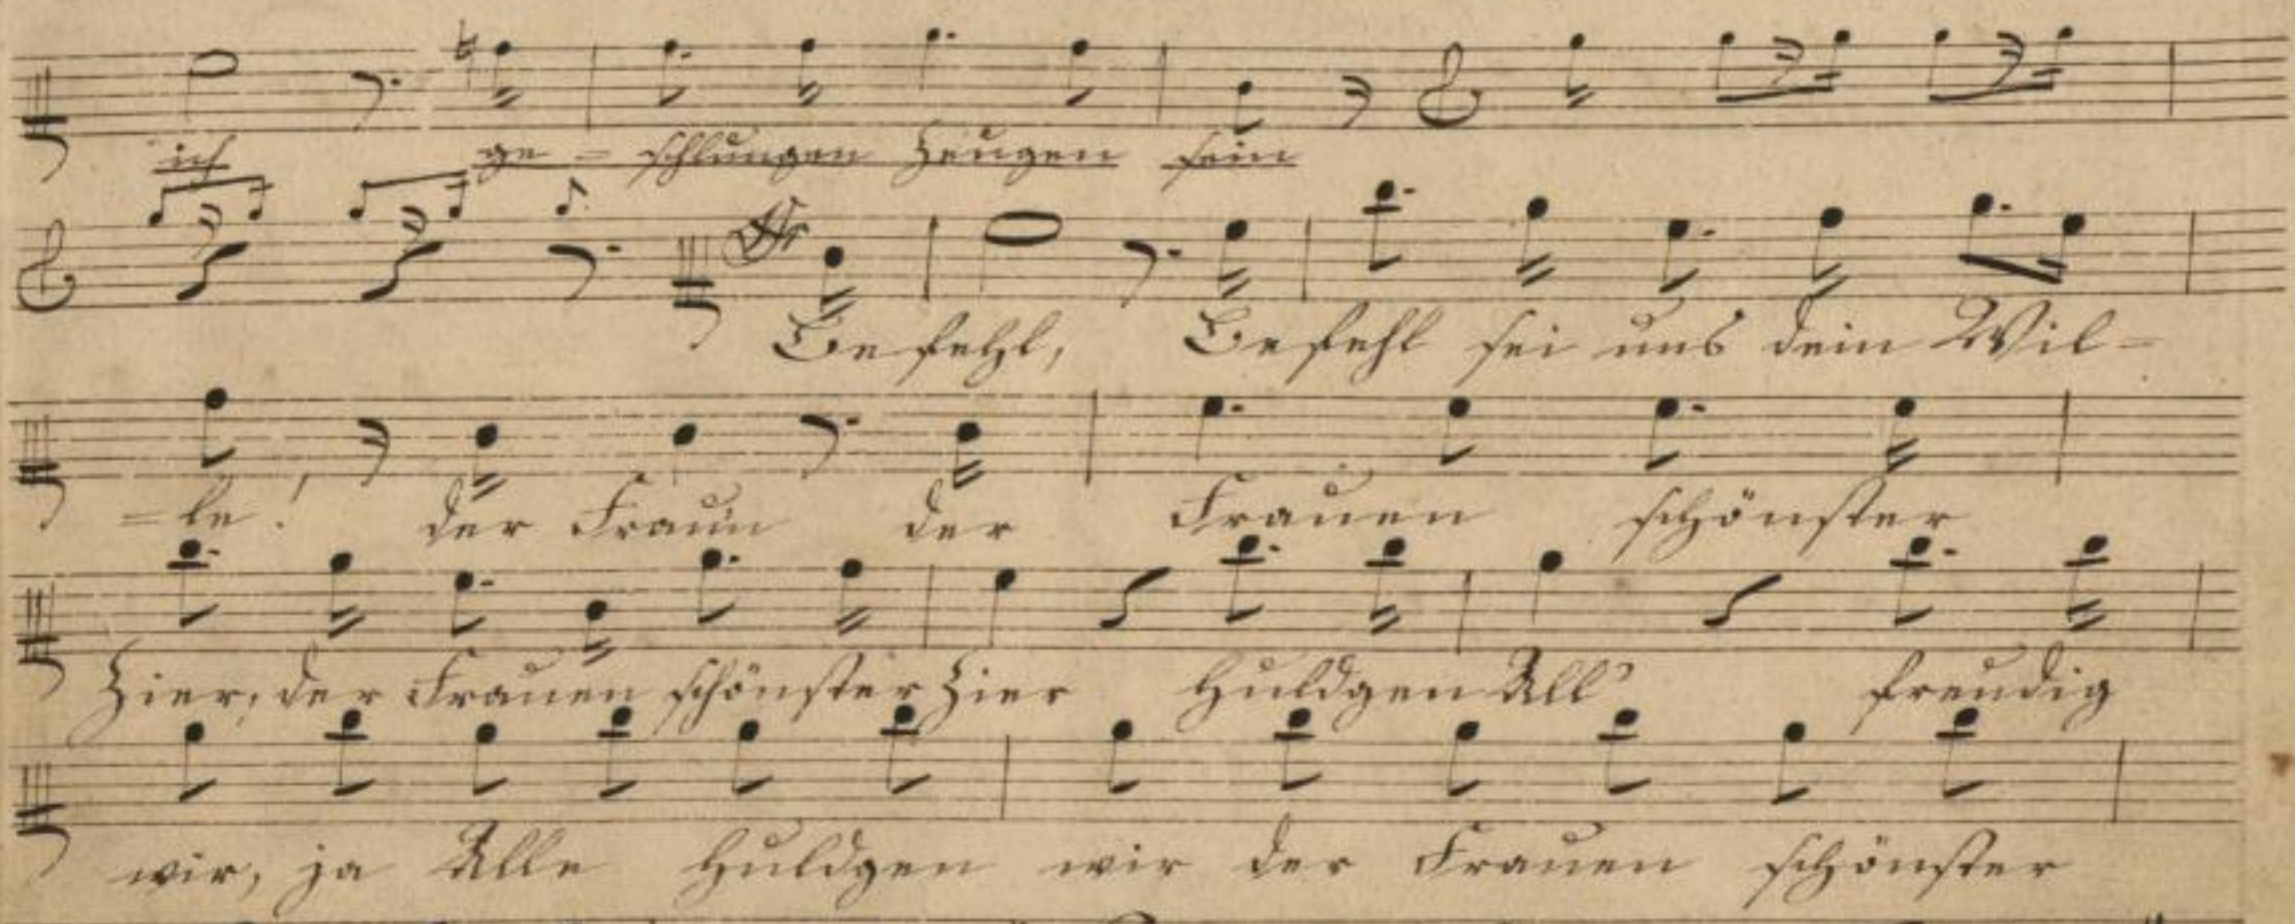 ich ge - schlungen Zeugen sein
Befehl, Befehl sei uns dein Wil-
=le! der Frau'n der Frauen schönster
Zier, der Frauen schönster Zier Huldgen All' freudig
wir, ja Alle Huldgen wir der Frauen schönster